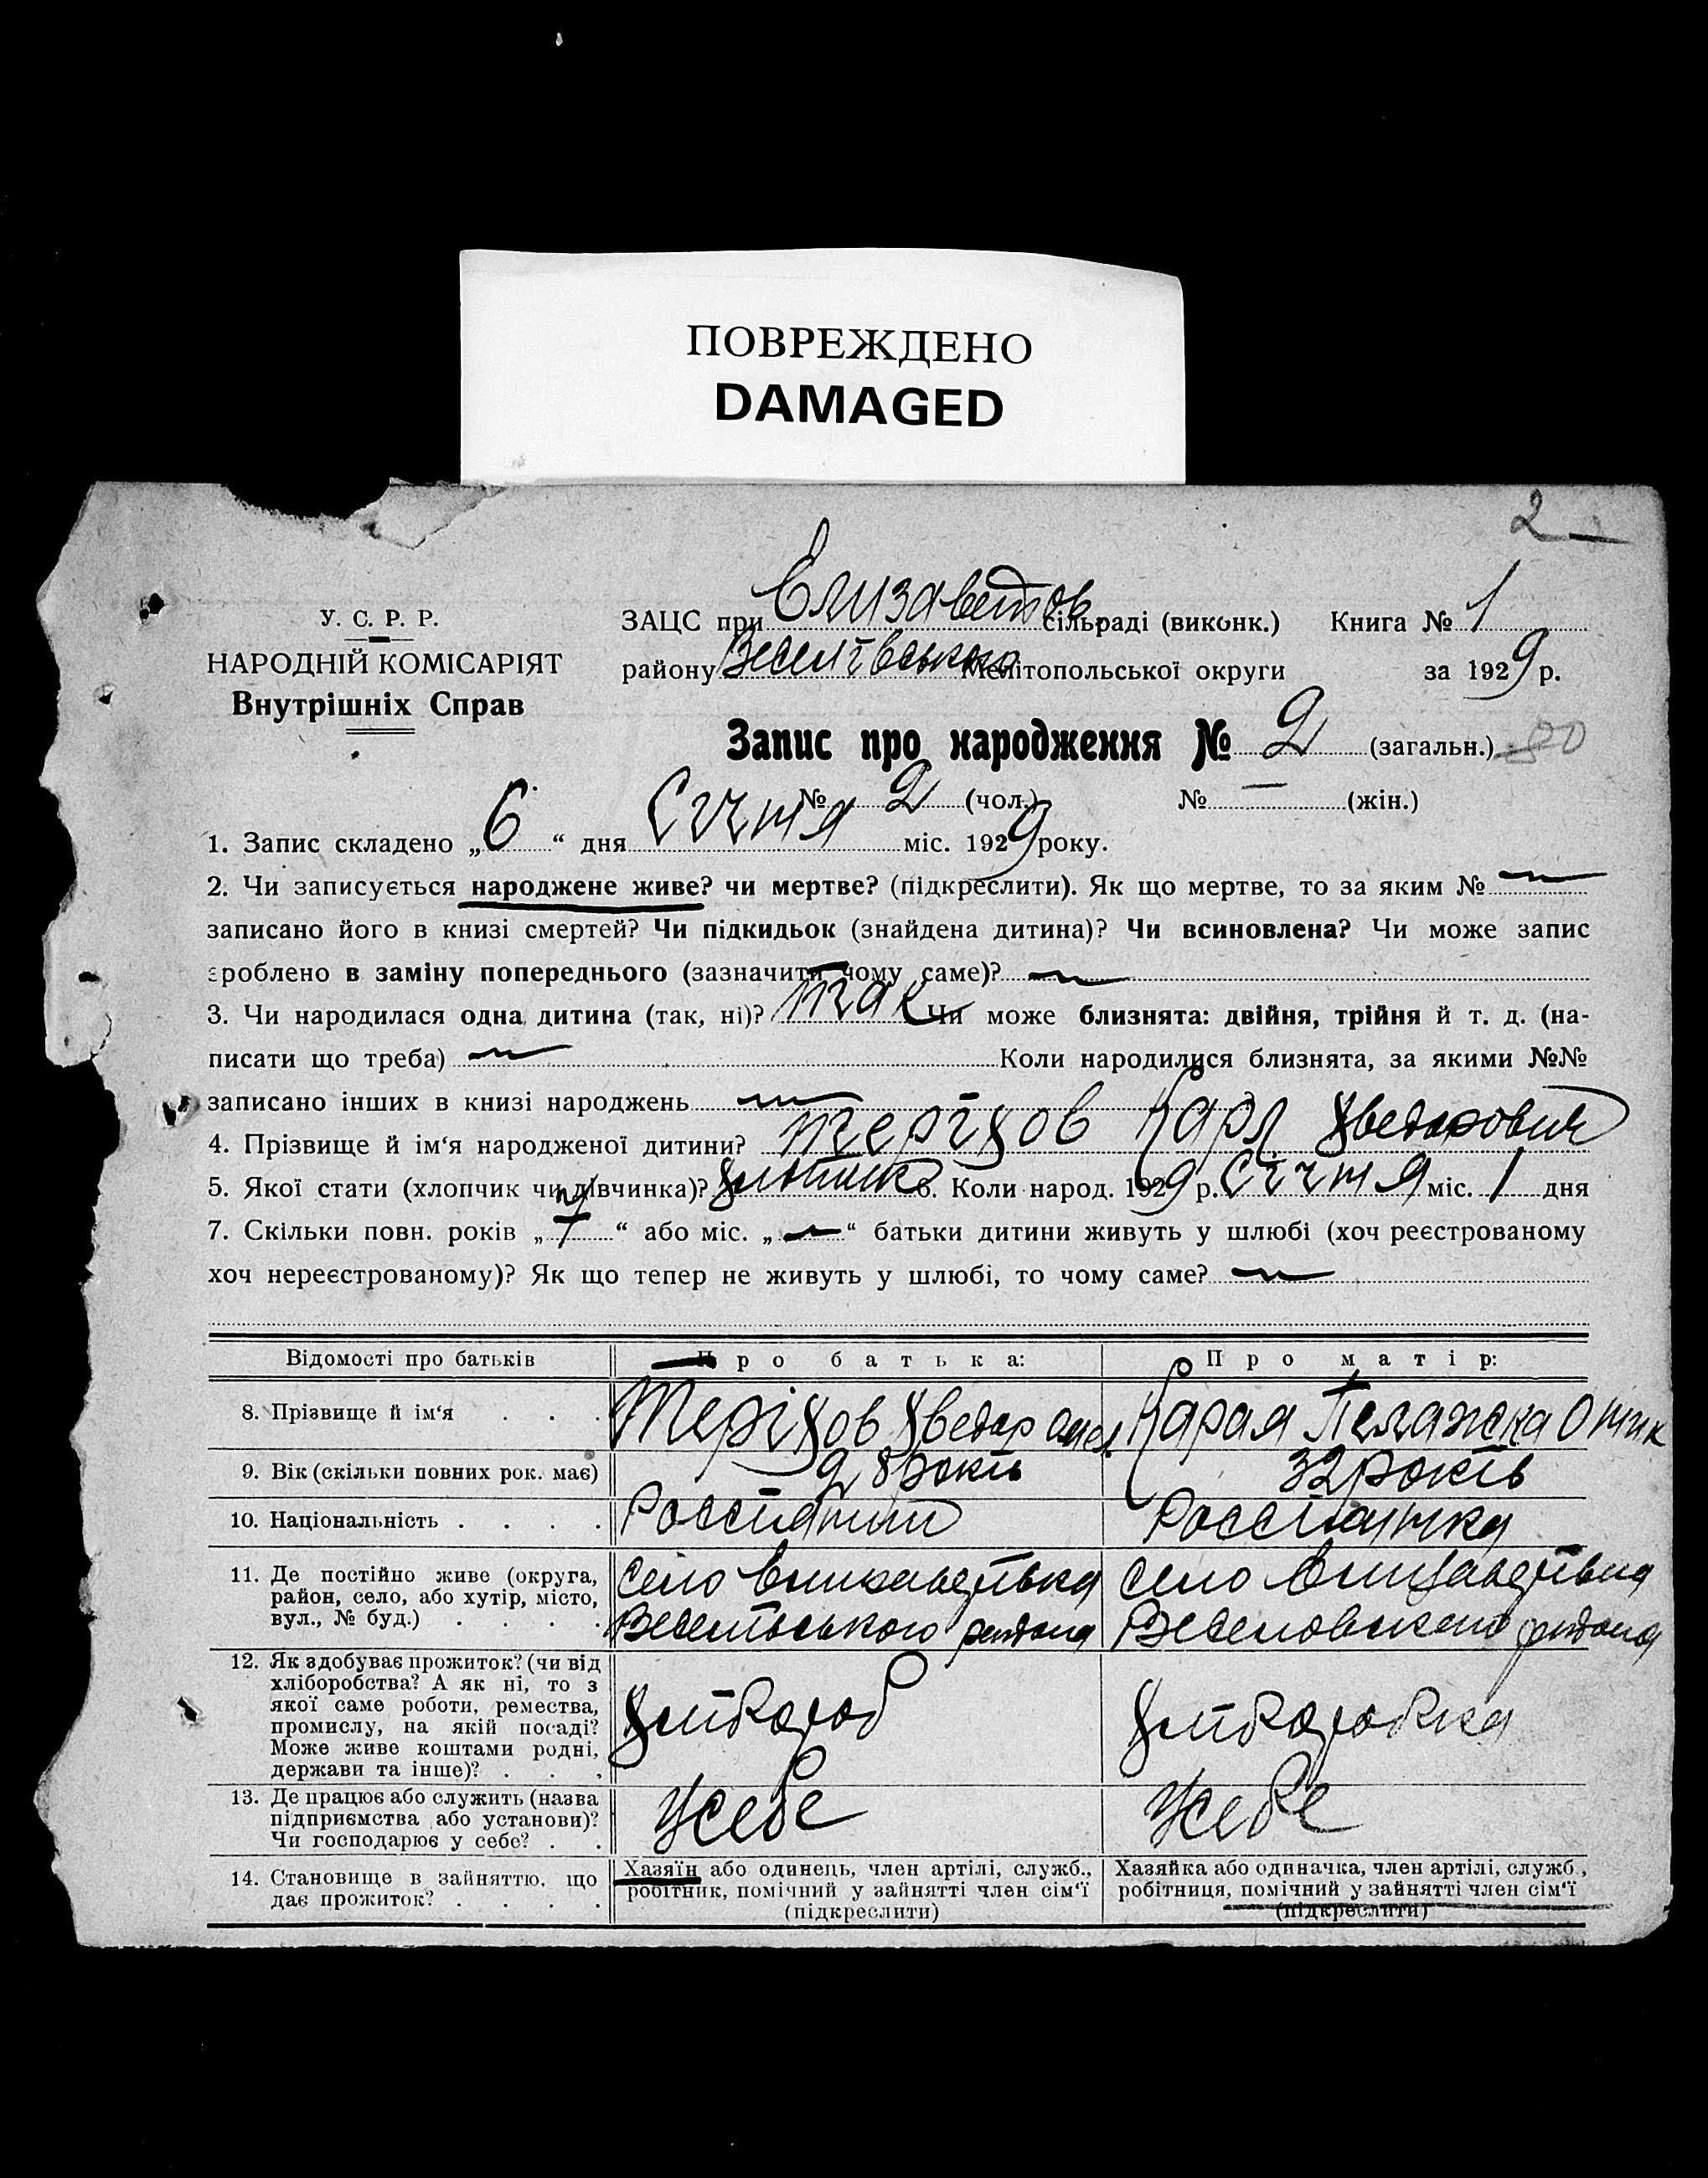 ПОВРЕЖДЕНО
DAMAGED
2
У. С. Р. Р.
НАРОДНІЙ КОМІСАРІЯТ
Внутрішніх Справ
ЗАЦС при Єлизаветов сільраді (виконк.) Книга № 1
району Веселівського Мелітопольської округи за 1929 р.
Запис про народження № 2 (загальн.)
№ 2 (чол.) № — (жін.)
1. Запис складено „6“ дня Січня міс. 1929 року.
2. Чи записується народжене живе? чи мертве? (підкреслити). Як що мертве, то за яким №
записано його в книзі смертей? Чи підкидьок (знайдена дитина)? Чи всиновлена? Чи може запис
зроблено в заміну попереднього (зазначити чому саме)?
3. Чи народилася одна дитина (так, ні)? так Чи може близнята: двійня, трійня й т. д. (на-
писати що треба) Коли народилися близнята, за якими №№
записано інших в книзі народжень
4. Прізвище й ім‘я народженої дитини? Карл
5. Якої стати (хлопчик чи дівчинка)? 6. Коли народ. 1929 р. Січня міс. 1 дня
7. Скільки повн. років „ “ або міс. „ “ батьки дитини живуть у шлюбі (хоч реєстрованому
хоч нереєстрованому)? Як що тепер не живуть у шлюбі, то чому саме?
Відомості про батьків Про батька: Про матір:
8. Прізвище й ім‘я
9. Вік (скільки повних рок. має) 28 років 32 років
10. Національність . . . . Россіянин Россіянка
11. Де постійно живе (округа, район, село, або хутір, місто, вул., № буд.) . . . . село село
12. Як здобуває прожиток? (чи від хліборобства? А як ні, то з якої саме роботи, ремества, промислу, на якій посаді? Може живе коштами родні, держави та інше)? . . .
13. Де працює або служить (назва підприємства або установи)? Чи господарює у себе? . . Усебе Усебе
14. Становище в зайняттю, що дає прожиток? . . . .
Хазяїн або одинець, член артілі, служб., робітник, помічний у зайнятті член сім‘ї (підкреслити)
Хазяйка або одиначка, член артілі, служб., робітниця, помічний у зайнятті член сім‘ї (підкреслити)